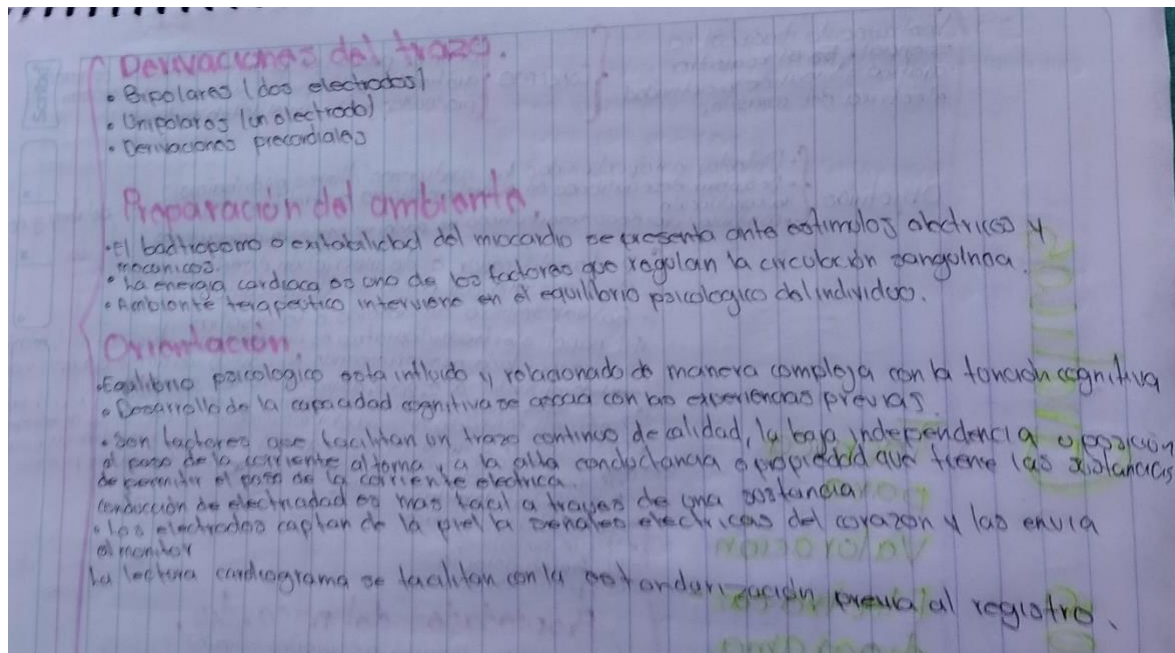 Derivaciones del trazo.
• Bipolares (dos electrodos)
• Unipolares (un electrodo)
• Derivaciones precordiales
Preparación del ambiente
• El badtropomo o exitabilidad del miocardio se presenta ante estimulos electricos y
mecanicos.
• La energia cardiaca es uno de los factores que regulan la circulación sanguinea.
• Ambiente terapeutico interviene en el equilibrio psicologico del individuo.
Orientación
• Equilibrio psicologico esta influido y relacionado de manera compleja con la función cognitiva
• Desarrollo de la capacidad cognitiva se con las experiencias previas.
• Son factores que facilitan un trazo continuo de calidad, la baja independencia u oposición
al paso de la corriente alterna, a la alta conductancia o propiedad que tiene las
de permitir el paso de la corriente electrica.
Conducción de electriadad es mas facil a traves de una sustancia
• los electrodos captan de la piel la señales electricas del corazon y las envia
al monitor
La lectura cardiograma se facilitan con la estandarización previa al registro.